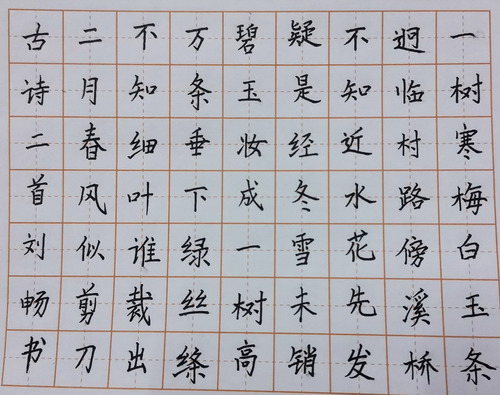 一树寒梅白玉条
迥临村路傍溪桥
不知近水花先发
疑是经冬雪未销
碧玉妆成一树高
万条垂下绿丝绦
不知细叶谁裁出
二月春风似剪刀
古诗二首刘畅书